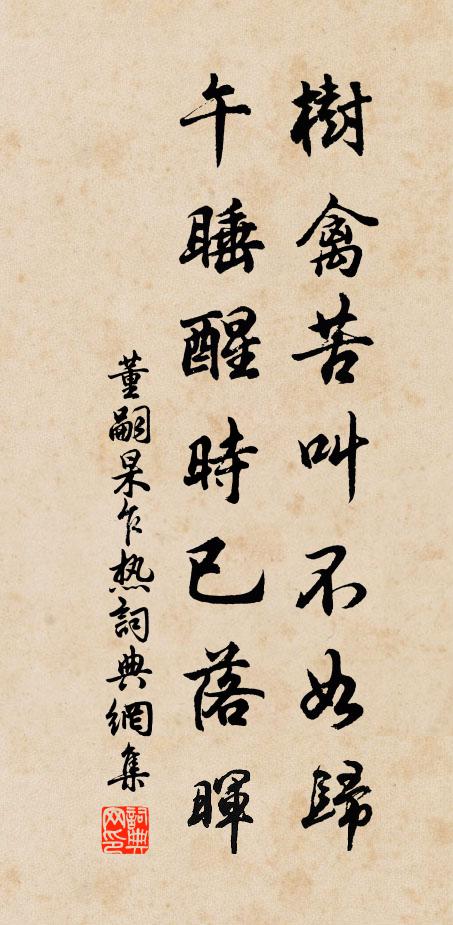 樹禽苦叫不如歸
午睡醒時已落暉
董嗣杲乍热詞典網集
詞典網印